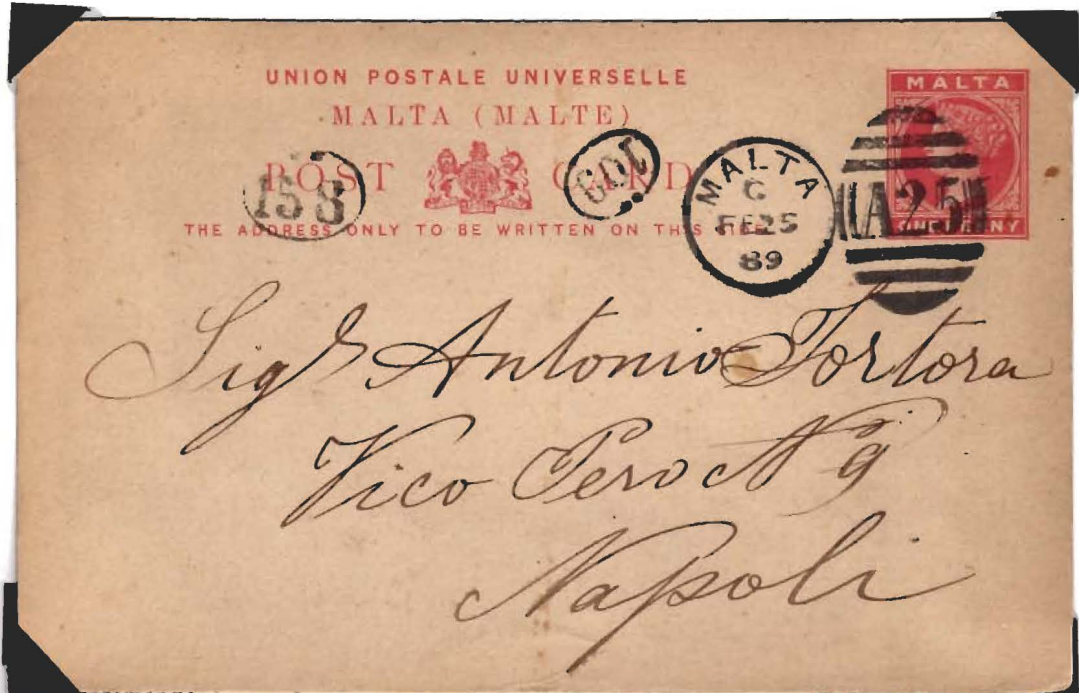 UNION POSTALE UNIVERSELLE
MALTA (MALTE)
POST CARD
THE ADDRESS ONLY TO BE WRITTEN ON THIS SIDE
MALTA
ONE PENNY
158
109
MALTA
G
FE25
89
A25
Sigr Antonio Tortora
Vico Pero N 9
Napoli